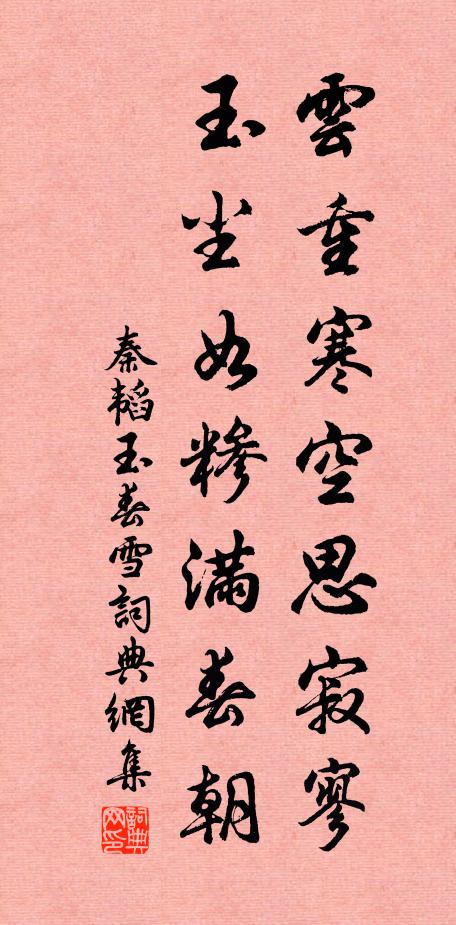 雲重寒空思寂寥
玉尘如糁满春朝
秦韬玉春雪詞典網集
詞典网印